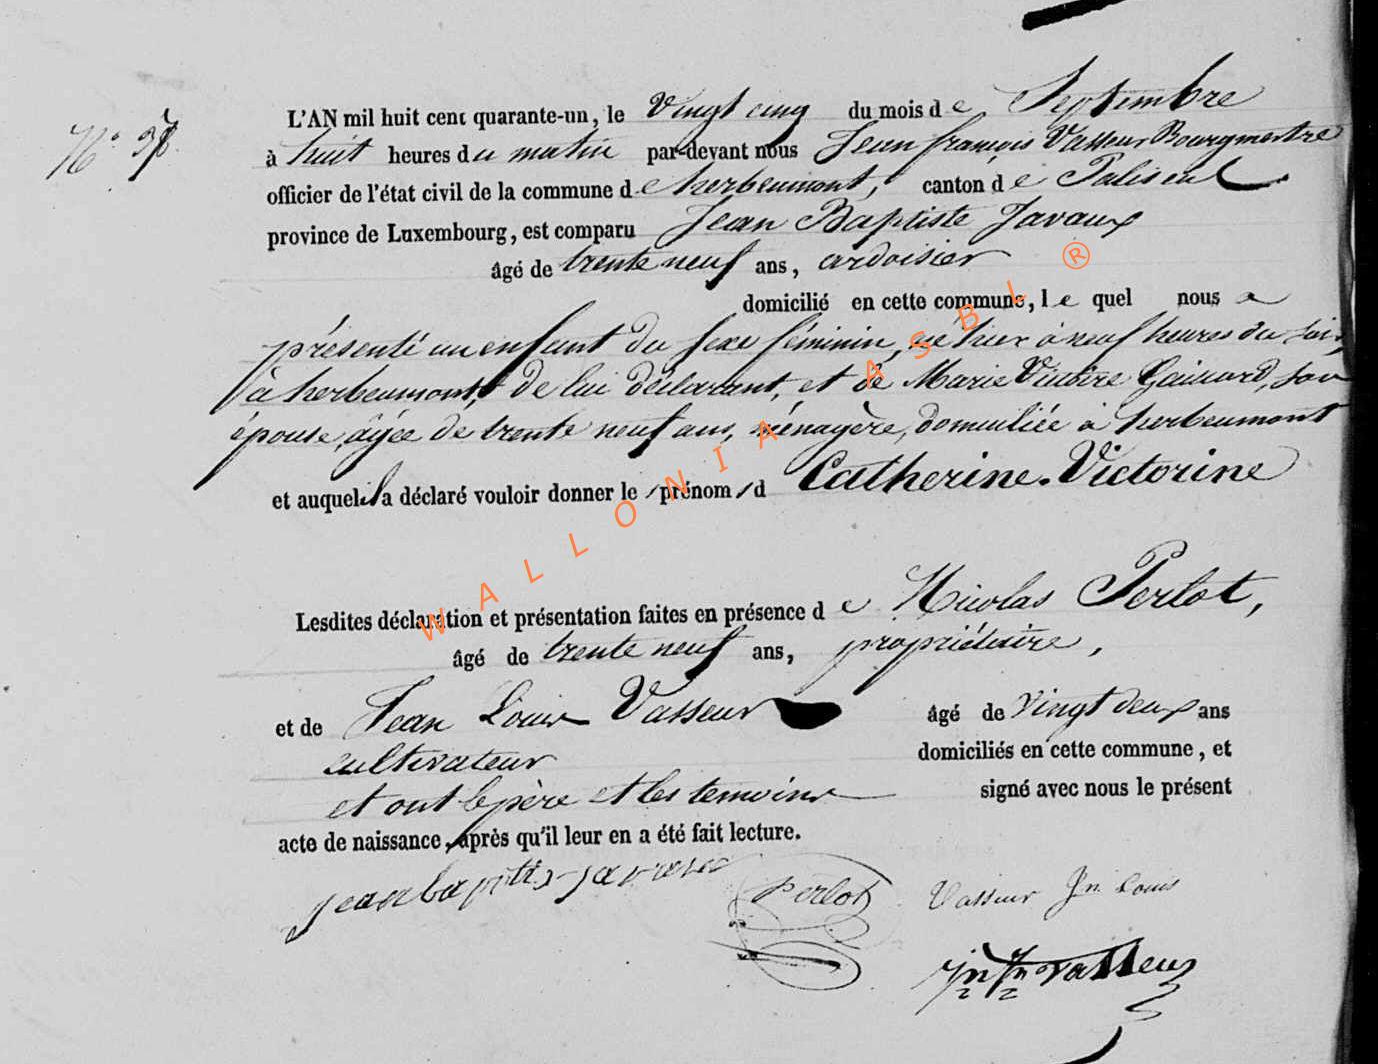 L'AN mil huit cent quarante-un, le Vingt cinq du mois de Septembre
à huit heures du matin par-devant nous Jean françois Vasseur Bourgmestre
officier de l'état civil de la commune de herbeumont, canton de Paliseul
province de Luxembourg, est comparu Jean Baptiste Javaux
âgé de trente neuf ans, ardoisier
domicilié en cette commune, le quel nous a
présenté un enfant du sexe féminin, né hier à neuf heures du soir,
à herbeumont, de lui déclarant, et de Marie Victoire Gaillard, son
épouse, âgée de trente neuf ans, ménagère, domiciliée à herbeumont
et auquel il a déclaré vouloir donner le s prénom s d Catherine-Victorine
Lesdites déclaration et présentation faites en présence de Nicolas Perlot,
âgé de trente neuf ans, propriétaire,
et de Jean Louis Vasseur âgé de Vingt deux ans
cultivateur domiciliés en cette commune, et
et ont le père et les temoins signé avec nous le présent
acte de naissance, après qu'il leur en a été fait lecture.
jean baptiste javaux Perlot Vasseur Jn Louis
Jn fn Vasseur
WALLONIA ASBL ®